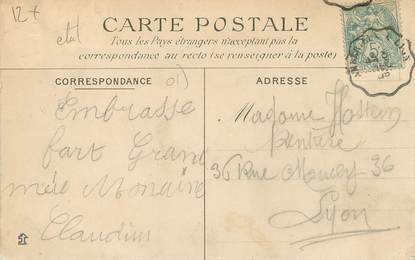 12+
etat
CARTE POSTALE
Tous les Pays étrangers n'acceptant pas la
correspondance au recto (se renseigner à la poste)
CORRESPONDANCE
Embrasse
fort Grand
mère Monaine
Claudin
ADRESSE
Madame Hostein
Rentière
36 Rue 36
Lyon